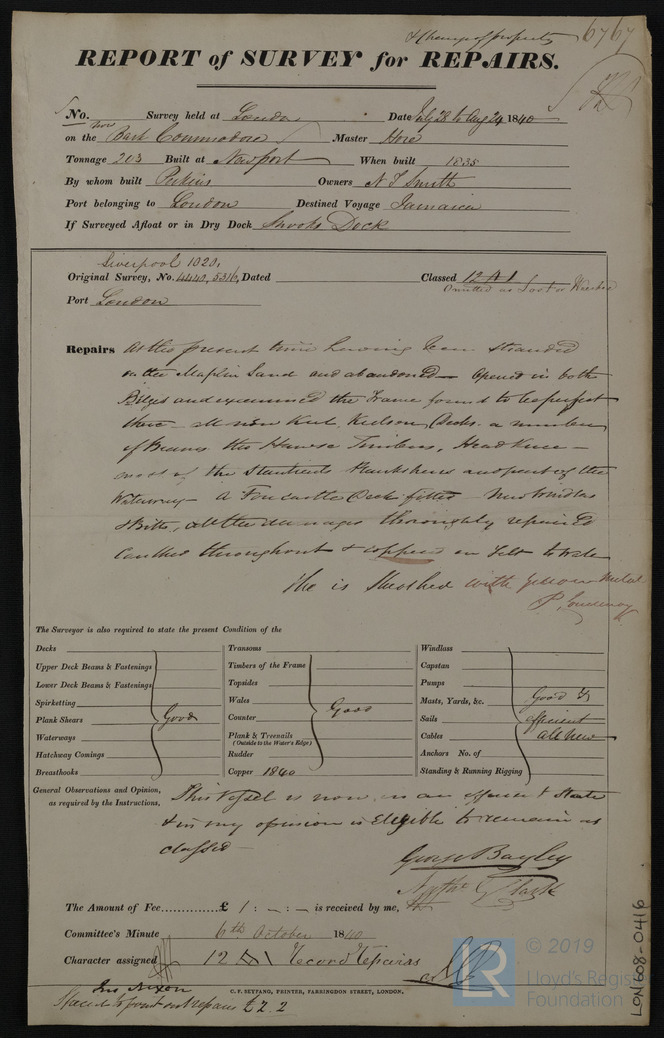 & Change of property 6767
REPORT of SURVEY for REPAIRS.
No. Survey held at London Date July 28 to Aug 24 1840
on the Bark Commodore Master Hore
Tonnage 203 Built at Newport When built 1835
By whom built Perkins Owners N T Smith
Port belonging to London Destined Voyage Jamaica
If Surveyed Afloat or in Dry Dock Dock
Liverpool 1020,
Original Survey, No. 4440, 5316, Dated Classed 12 A 1
Omitted as Lost or
Port London
Repairs At the present time having been stranded
on the Maplin Sand and abandoned — opened in both
Bilges and examined the Frame found to be perfect
there all new Keel, Keelson, Decks. a number
of Beams the Hawse Timbers, Head Knee —
most of the Stantients Planksheers and part of the
Waterway — A Forecastle Deck fitted New Windlas
& Bitts, all the damages thoroughly repaired
caulked throughout & coppered on Felt to Wale
She is Sheathed with yellow metal
The Surveyor is also required to state the present Condition of the
Decks
Upper Deck Beams & Fastenings
Lower Deck Beams & Fastenings
Spirketting
Plank Shears Good
Waterways
Hatchway Comings
Breasthooks
Transoms
Timbers of the Frame
Topsides
Wales
Counter Good
Plank & Treenails
(Outside to the Water's Edge)
Rudder
Copper 1840
Windlass
Capstan
Pumps
Masts, Yards, &c. Good &
Sails efficient
Cables all New
Anchors No. of
Standing & Running Rigging
General Observations and Opinion, This Vessel is now in an efficient State
as required by the Instructions. & in my opinion is Eligible to remain as
classed —
George Bayley
The Amount of Fee £ 1 : - : - is received by me,
Committee's Minute 6th October 1840
Character assigned 12 A1 Record Repairs
C. F. SEYFANG, PRINTER, FARRINGDON STREET, LONDON.
Jno Nixon
£2.2
LR
© 2019
Lloyd's Register
Foundation
LON 608-0416